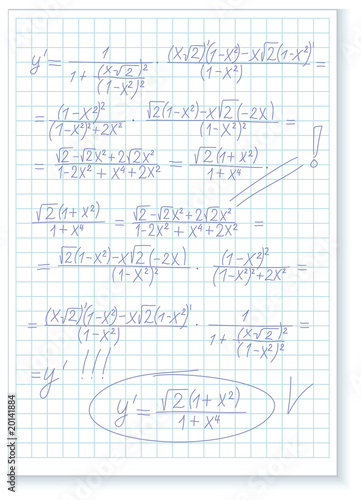 y' = 1 / (1 + (x√2)² / (1-x²)²) · ((x√2)'(1-x²) - x√2(1-x²)') / (1-x²) =
= (1-x²)² / ((1-x²)² + 2x²) · (√2(1-x²) - x√2(-2x)) / (1-x²)² =
= (√2 - √2x² + 2√2x²) / (1-2x² + x⁴ + 2x²) = √2(1+x²) / (1+x⁴) . !
√2(1+x²) / (1+x⁴) = (√2 - √2x² + 2√2x²) / (1-2x² + x⁴ + 2x²) =
= (√2(1-x²) - x√2(-2x)) / (1-x²)² · (1-x²)² / ((1-x²)² + 2x²) =
= ((x√2)'(1-x²) - x√2(1-x²)') / (1-x²) · 1 / (1 + (x√2)² / (1-x²)²) =
= y' !!!
y' = √2(1+x²) / (1+x⁴)
Adobe Stock | #20141884